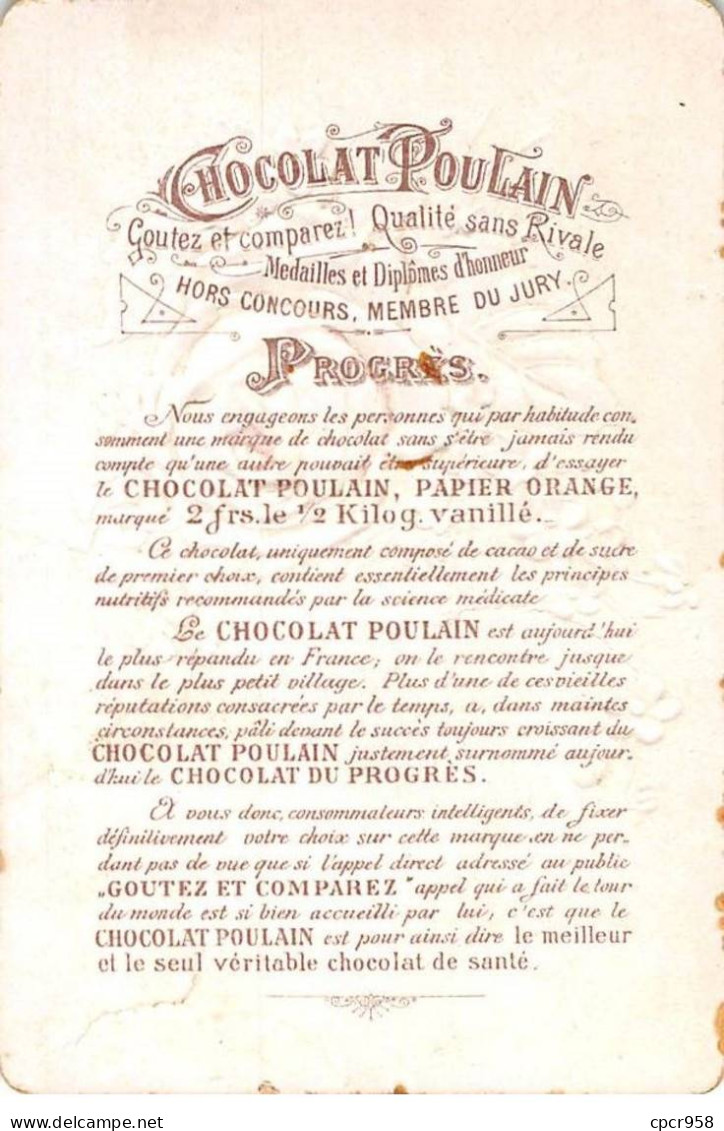 CHOCOLAT POULAIN
Goutez et comparez! Qualité sans Rivale
Medailles et Diplômes d'honneur
HORS CONCOURS, MEMBRE DU JURY.
PROGRÈS.
Nous engageons les personnes qui par habitude con-
somment une marque de chocolat sans s'être jamais rendu
compte qu'une autre pouvait être supérieure, d'essayer
le CHOCOLAT POULAIN, PAPIER ORANGE,
marqué 2 frs. le 1/2 Kilog. vanillé.
Ce chocolat, uniquement composé de cacao et de sucre
de premier choix, contient essentiellement les principes
nutritifs recommandés par la science médicate
Le CHOCOLAT POULAIN est aujourd'hui
le plus répandu en France; on le rencontre jusque
dans le plus petit village. Plus d'une de ces vieilles
réputations consacrées par le temps, a, dans maintes
circonstances, pâli devant le succès toujours croissant du
CHOCOLAT POULAIN justement surnommé aujour-
d'hui le CHOCOLAT DU PROGRÈS.
A vous donc, consommateurs intelligents, de fixer
définilivement votre choix sur cette marque en ne per-
dant pas de vue que si l'appel direct adressé au public
„GOUTEZ ET COMPAREZ" appel qui a fait le tour
du monde est si bien accueilli par lui, c'est que le
CHOCOLAT POULAIN est pour ainsi dire le meilleur
et le seul véritable chocolat de santé.
cpcr958